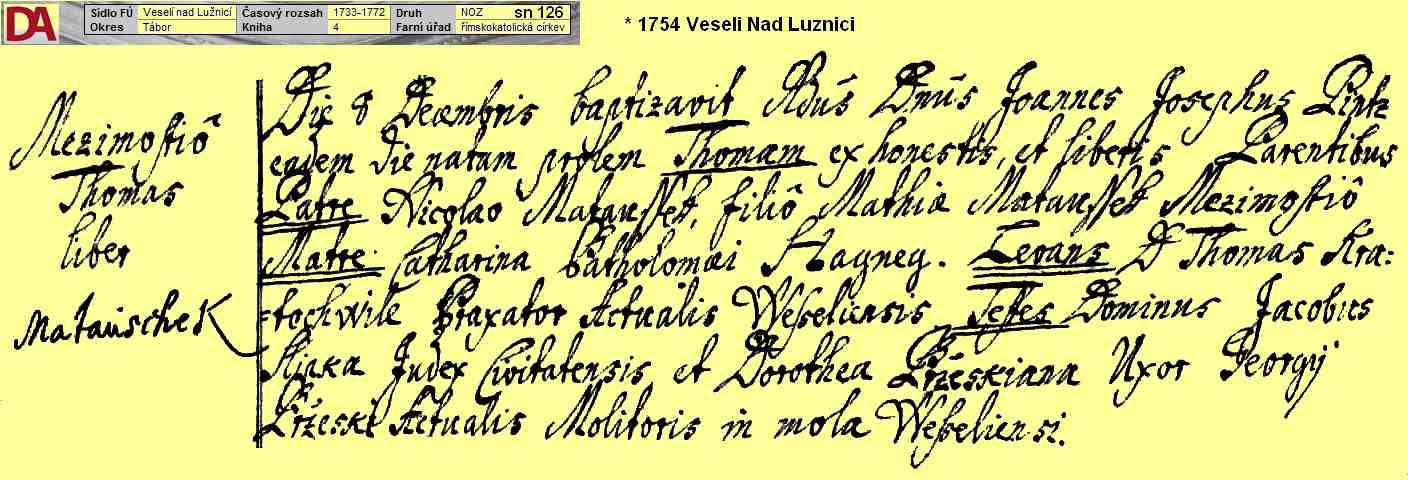 DA Sídlo FÚ Veselí nad Lužnicí Časový rozsah 1733-1772 Druh NOZ sn 126
Okres Tábor Kniha 4 Farní úřad římskokatolická církev
* 1754 Veseli Nad Luznici
Mezimostiô
Thomas
liber
Matauschek
Die 8 Decembris baptizavit Rdûs Dnûs Joannes Josephus Pintz
eadem die natam prolem Thomam ex honestis, et liberis Parentibus
Patre Nicolao Mataussek, filiô Mathiæ Mataussek Mezimostiô
Matre Catharina Bartholomæi Hagneg. Levans D Thomas Kra=
=tochwile Braxator Actualis Wesseliensis Testes Dominus Jacobus
Judex Civitatensis et Dorothea Brzeskiana Uxor Georgÿ
Brzeski Actualis Molitoris in mola Wesseliensi.